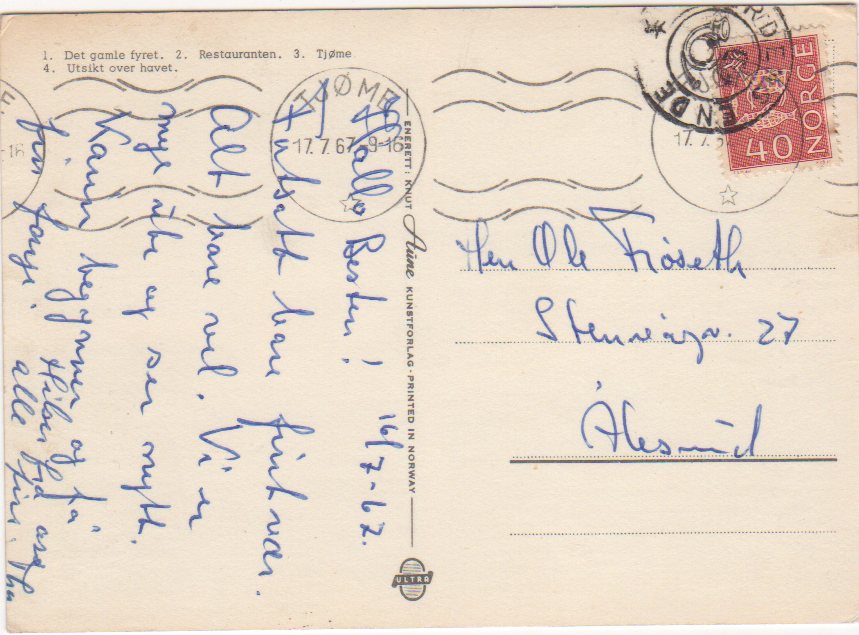 1. Det gamle fyret. 2. Restauranten. 3. Tjøme
4. Utsikt over havet.
TJØME
17.7.67.-9-16
17.7.
ENDE
NORGE
40
ENERETT: KNUT Aune KUNSTFORLAG - PRINTED IN NORWAY
ULTRA
16/7-67.
Hallo Besten!
Fortsatt bare fint vær.
Alt bare vel. Vi er
mye ute og ser nytt.
Karin begynner og få
fin farge.
Hilsen fra oss
alle
Herr Ole Frøseth
Stenvågv. 27
Ålesund